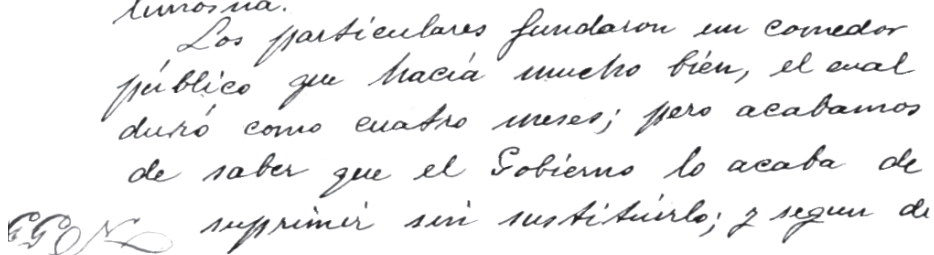 limosna.
Los particulares fundaron un comedor
público que hacía mucho bién, el cual
duró como cuatro meses; pero acabamos
de saber que el Gobierno lo acaba de
suprimir sin sustituírlo; y segun de